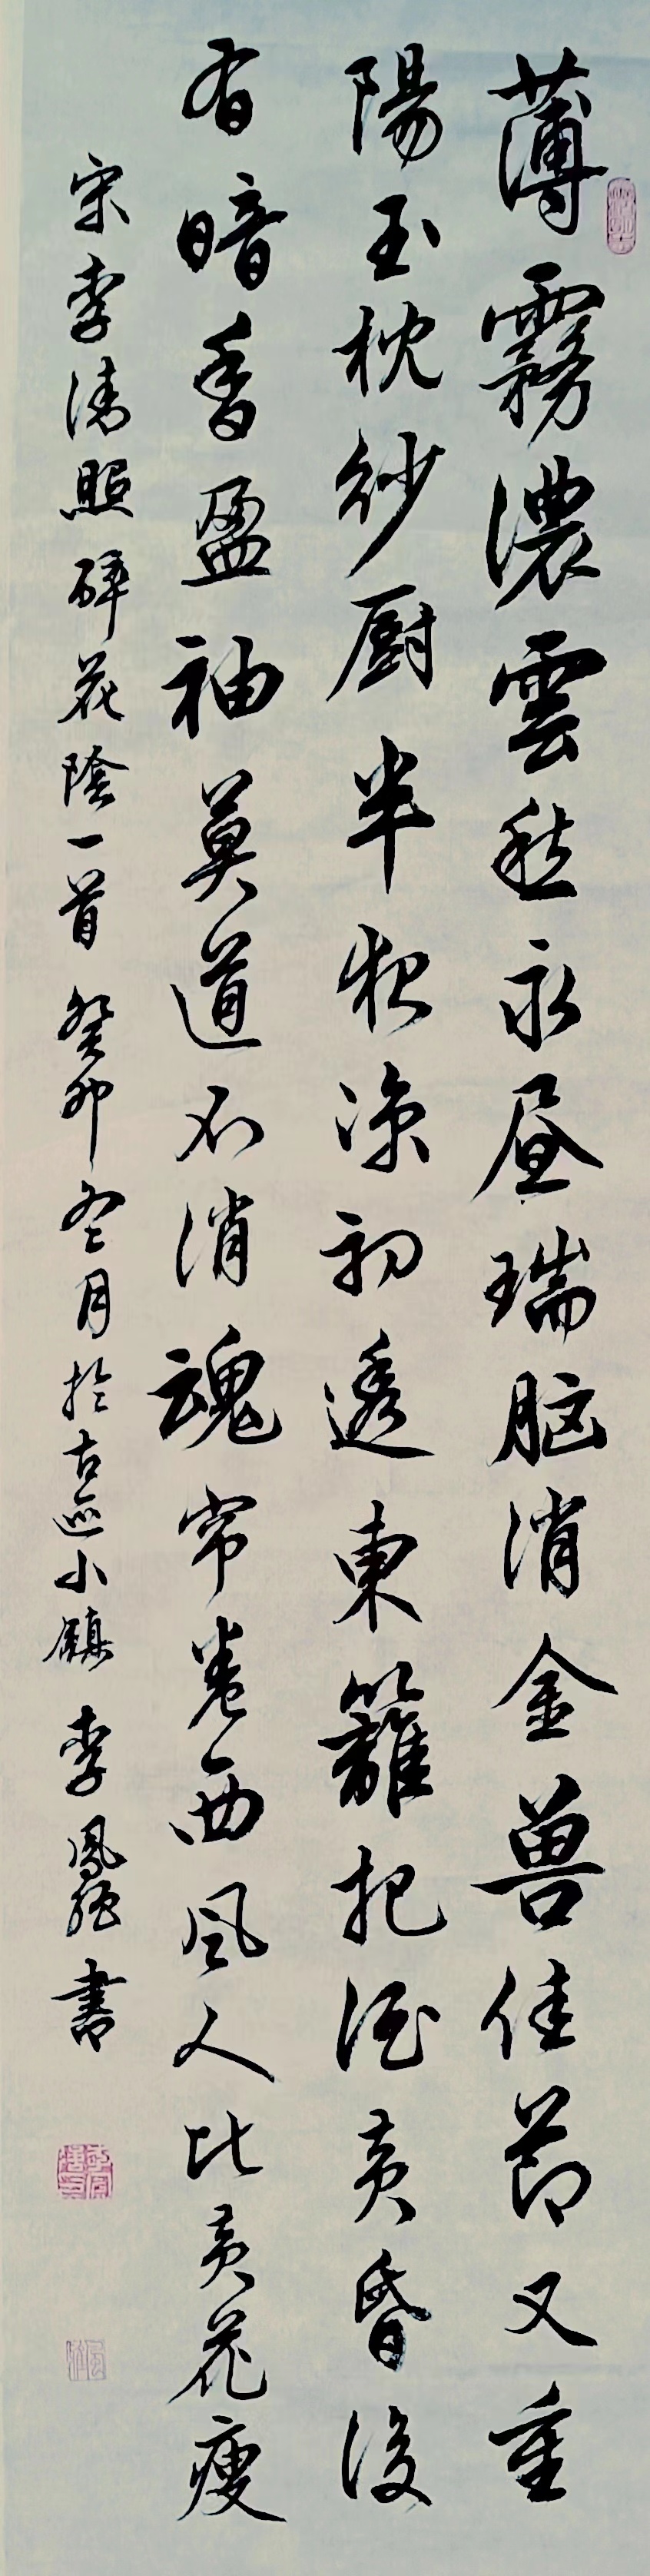 薄霧濃雲愁永昼瑞脑消金兽佳節又重
陽玉枕紗厨半夜凉初透東籬把酒黄昏後
有暗香盈袖莫道不消魂帘卷西風人比黄花瘦
宋李清照醉花陰一首癸卯冬月於古巡小鎮李鳳強書